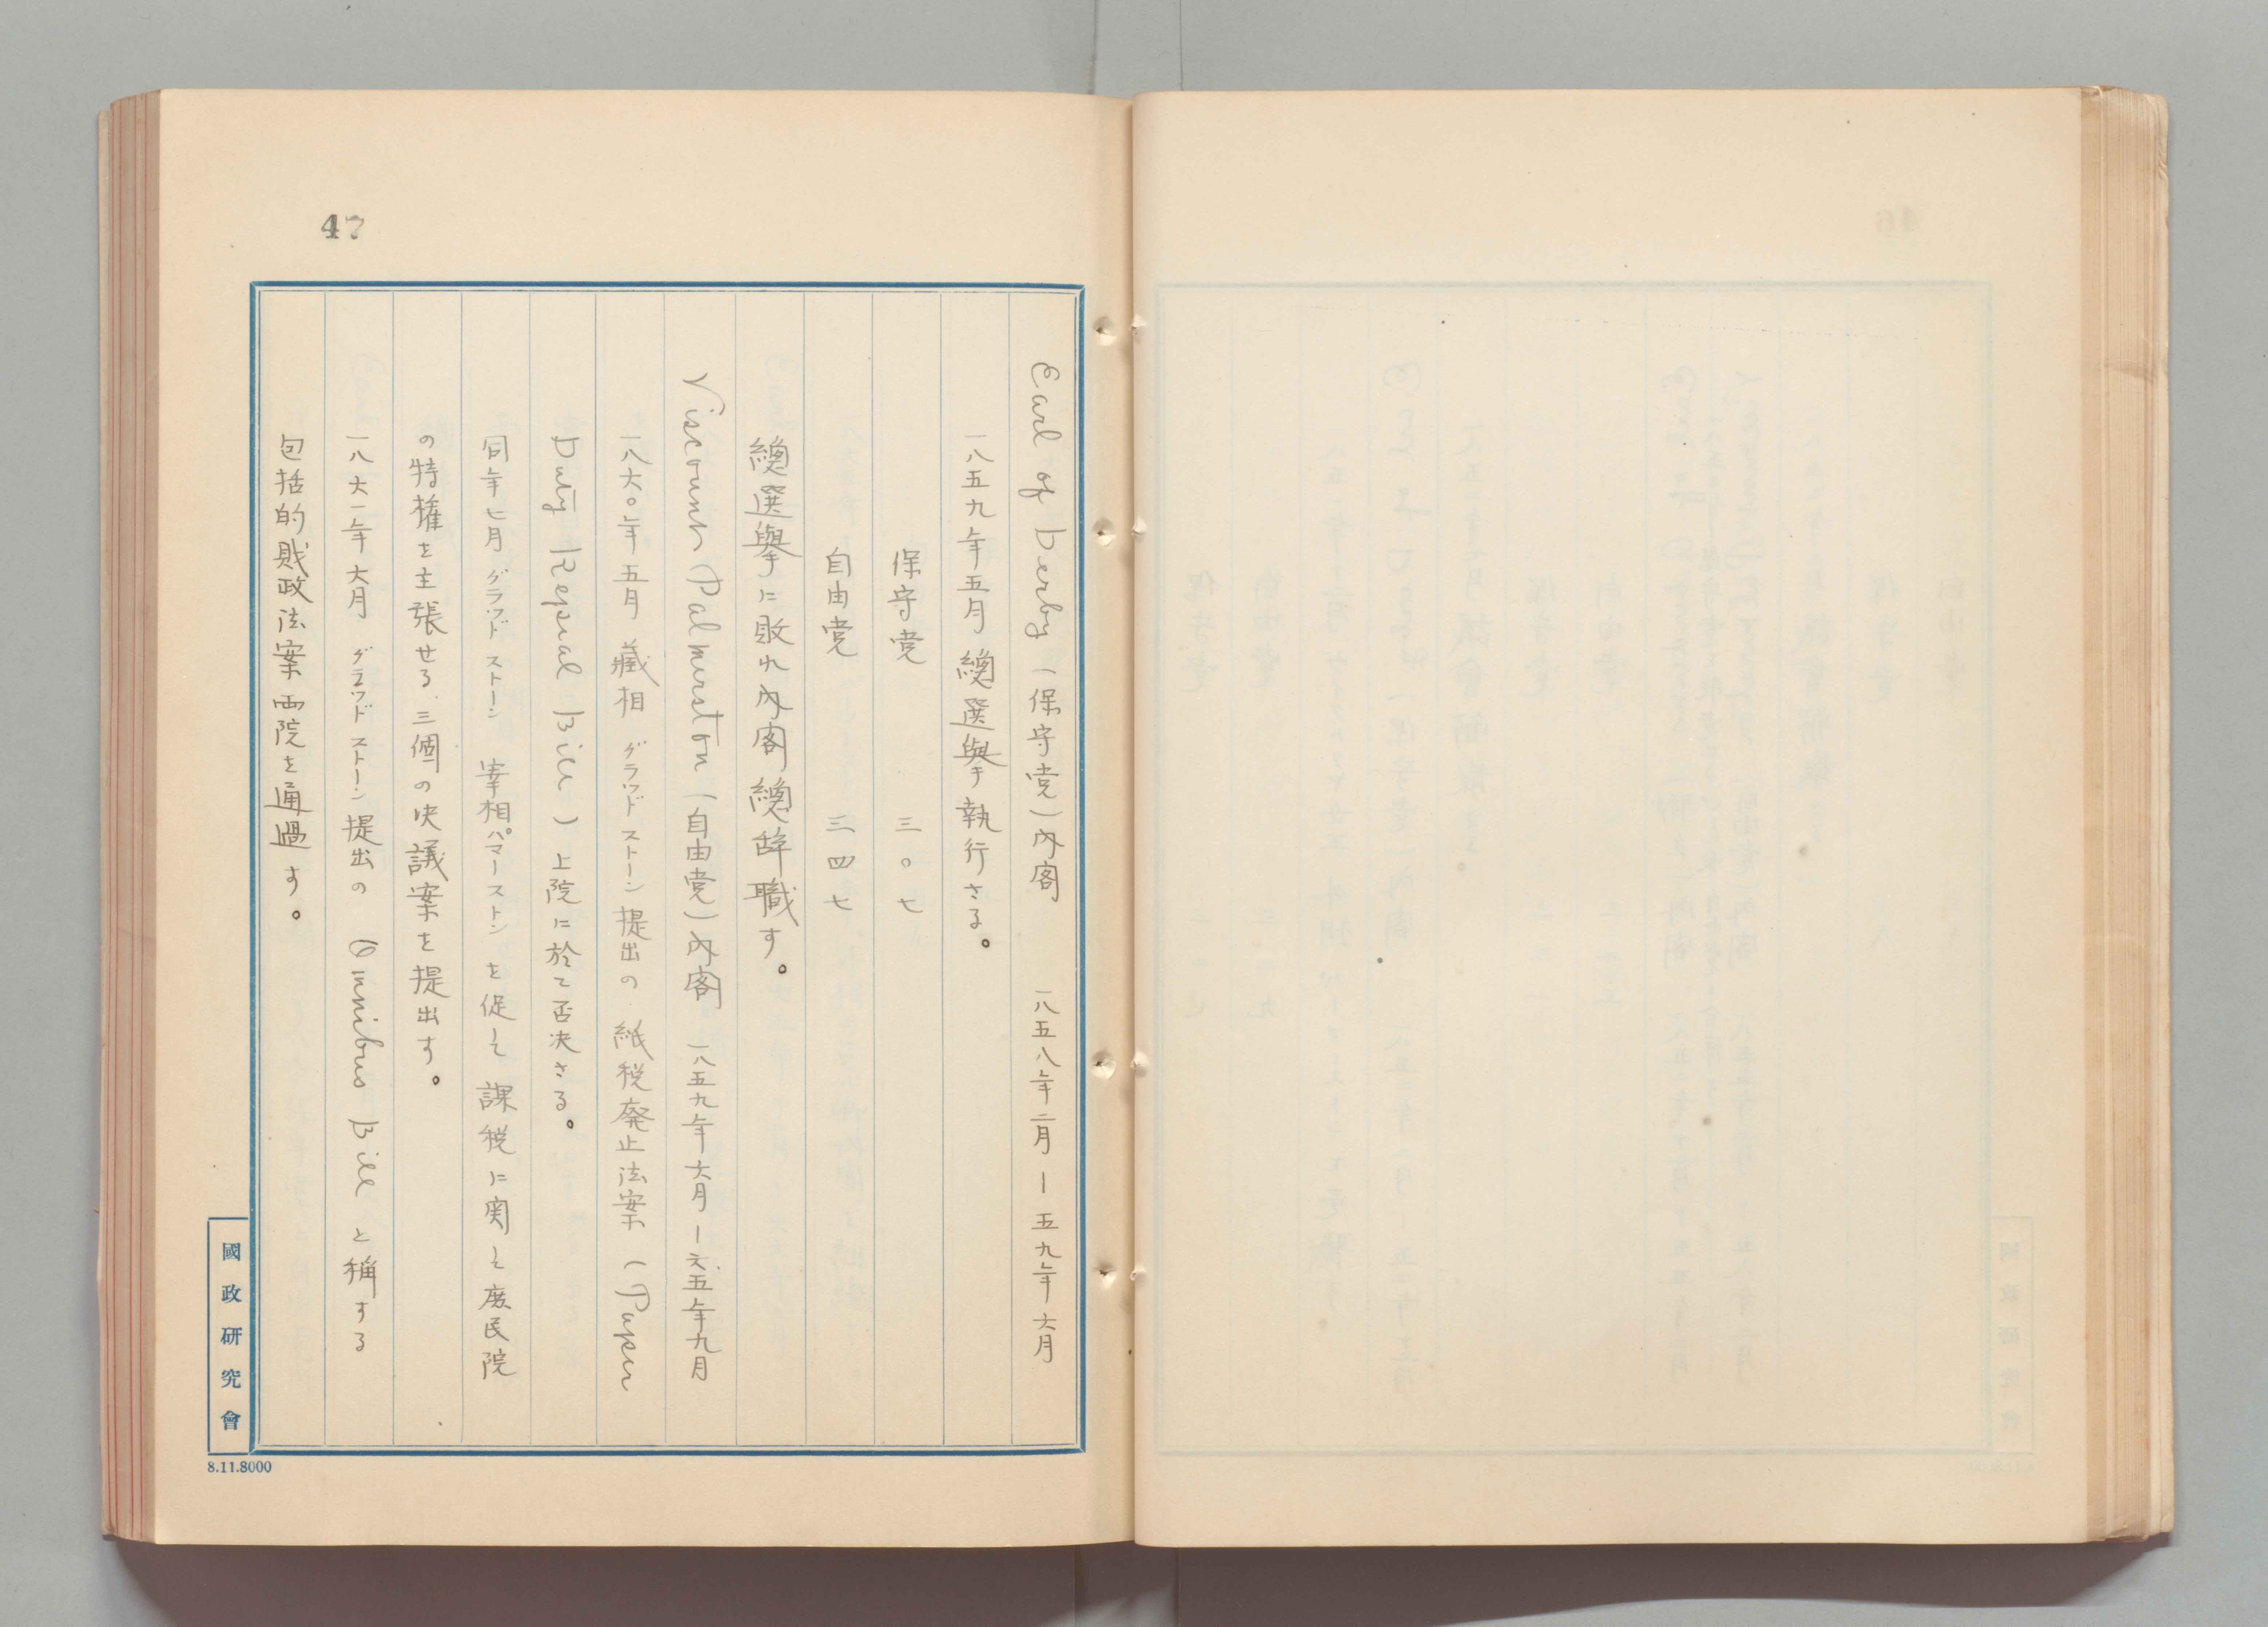 47
Earl of Derby（保守党）內閣　一八五八年二月ー五九年六月
一八五九年五月總選擧執行さる。
保守党　三〇七
自由党　三四七
總選擧に敗れ內閣總辞職す。
Viscount Palmerston（自由党）內閣　一八五九年六月ー六五年九月
一八六〇年五月藏相グラッドストーン提出の紙税廃止法案（Paper
Duty Repeal Bill）上院に於て否決さる。
同年七月グラッドストーン宰相パマーストンを促して課税に関して庶民院
の特権を主張せる三個の決議案を提出す。
一八六一年六月グラッドストーン提出の Omnibus Bill と稱する
包括的財政法案両院を通過す。
國政研究會
8.11.8000